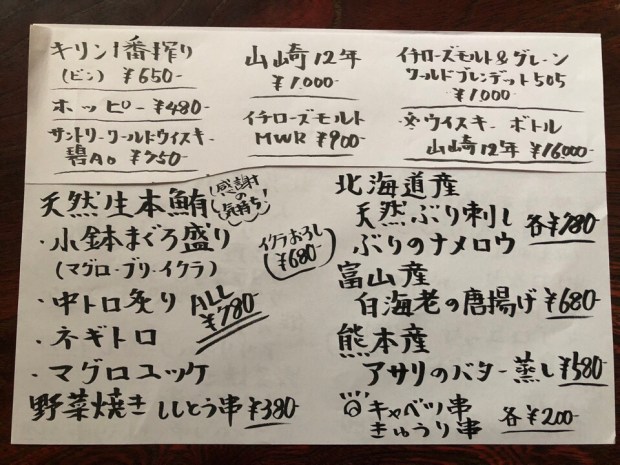 キリン1番搾り
(ビン) ¥650-
ホッピー ¥480-
サントリーワールドウイスキー
碧Ao ¥750-
山崎12年
¥1,000-
イチローズモルト
MWR ¥900-
イチローズモルト&グレーン
ワールドブレンデット505
¥1,000-
ウイスキー ボトル
山崎12年 ¥16,000-
天然生本鮪
感謝
の
気持ち
・小鉢まぐろ盛り
(マグロ・ブリ・イクラ)
イクラおろし
¥680-
・中トロ炙り
・ネギトロ
・マグロユッケ
ALL
¥780-
野菜焼き ししとう串 ¥380-
北海道産
天然ぶり刺し
ぶりのナメロウ
各¥780-
富山産
白海老の唐揚げ ¥680-
熊本産
アサリのバター蒸し ¥580-
キャベツ串
きゅうり串
各¥200-